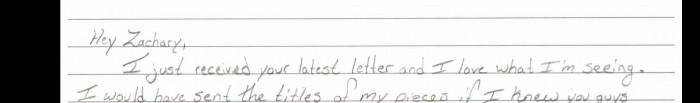 Hey Zachary,
I just received your latest letter and I love what I'm seeing.
I would have sent the titles of my pieces if I knew you guys